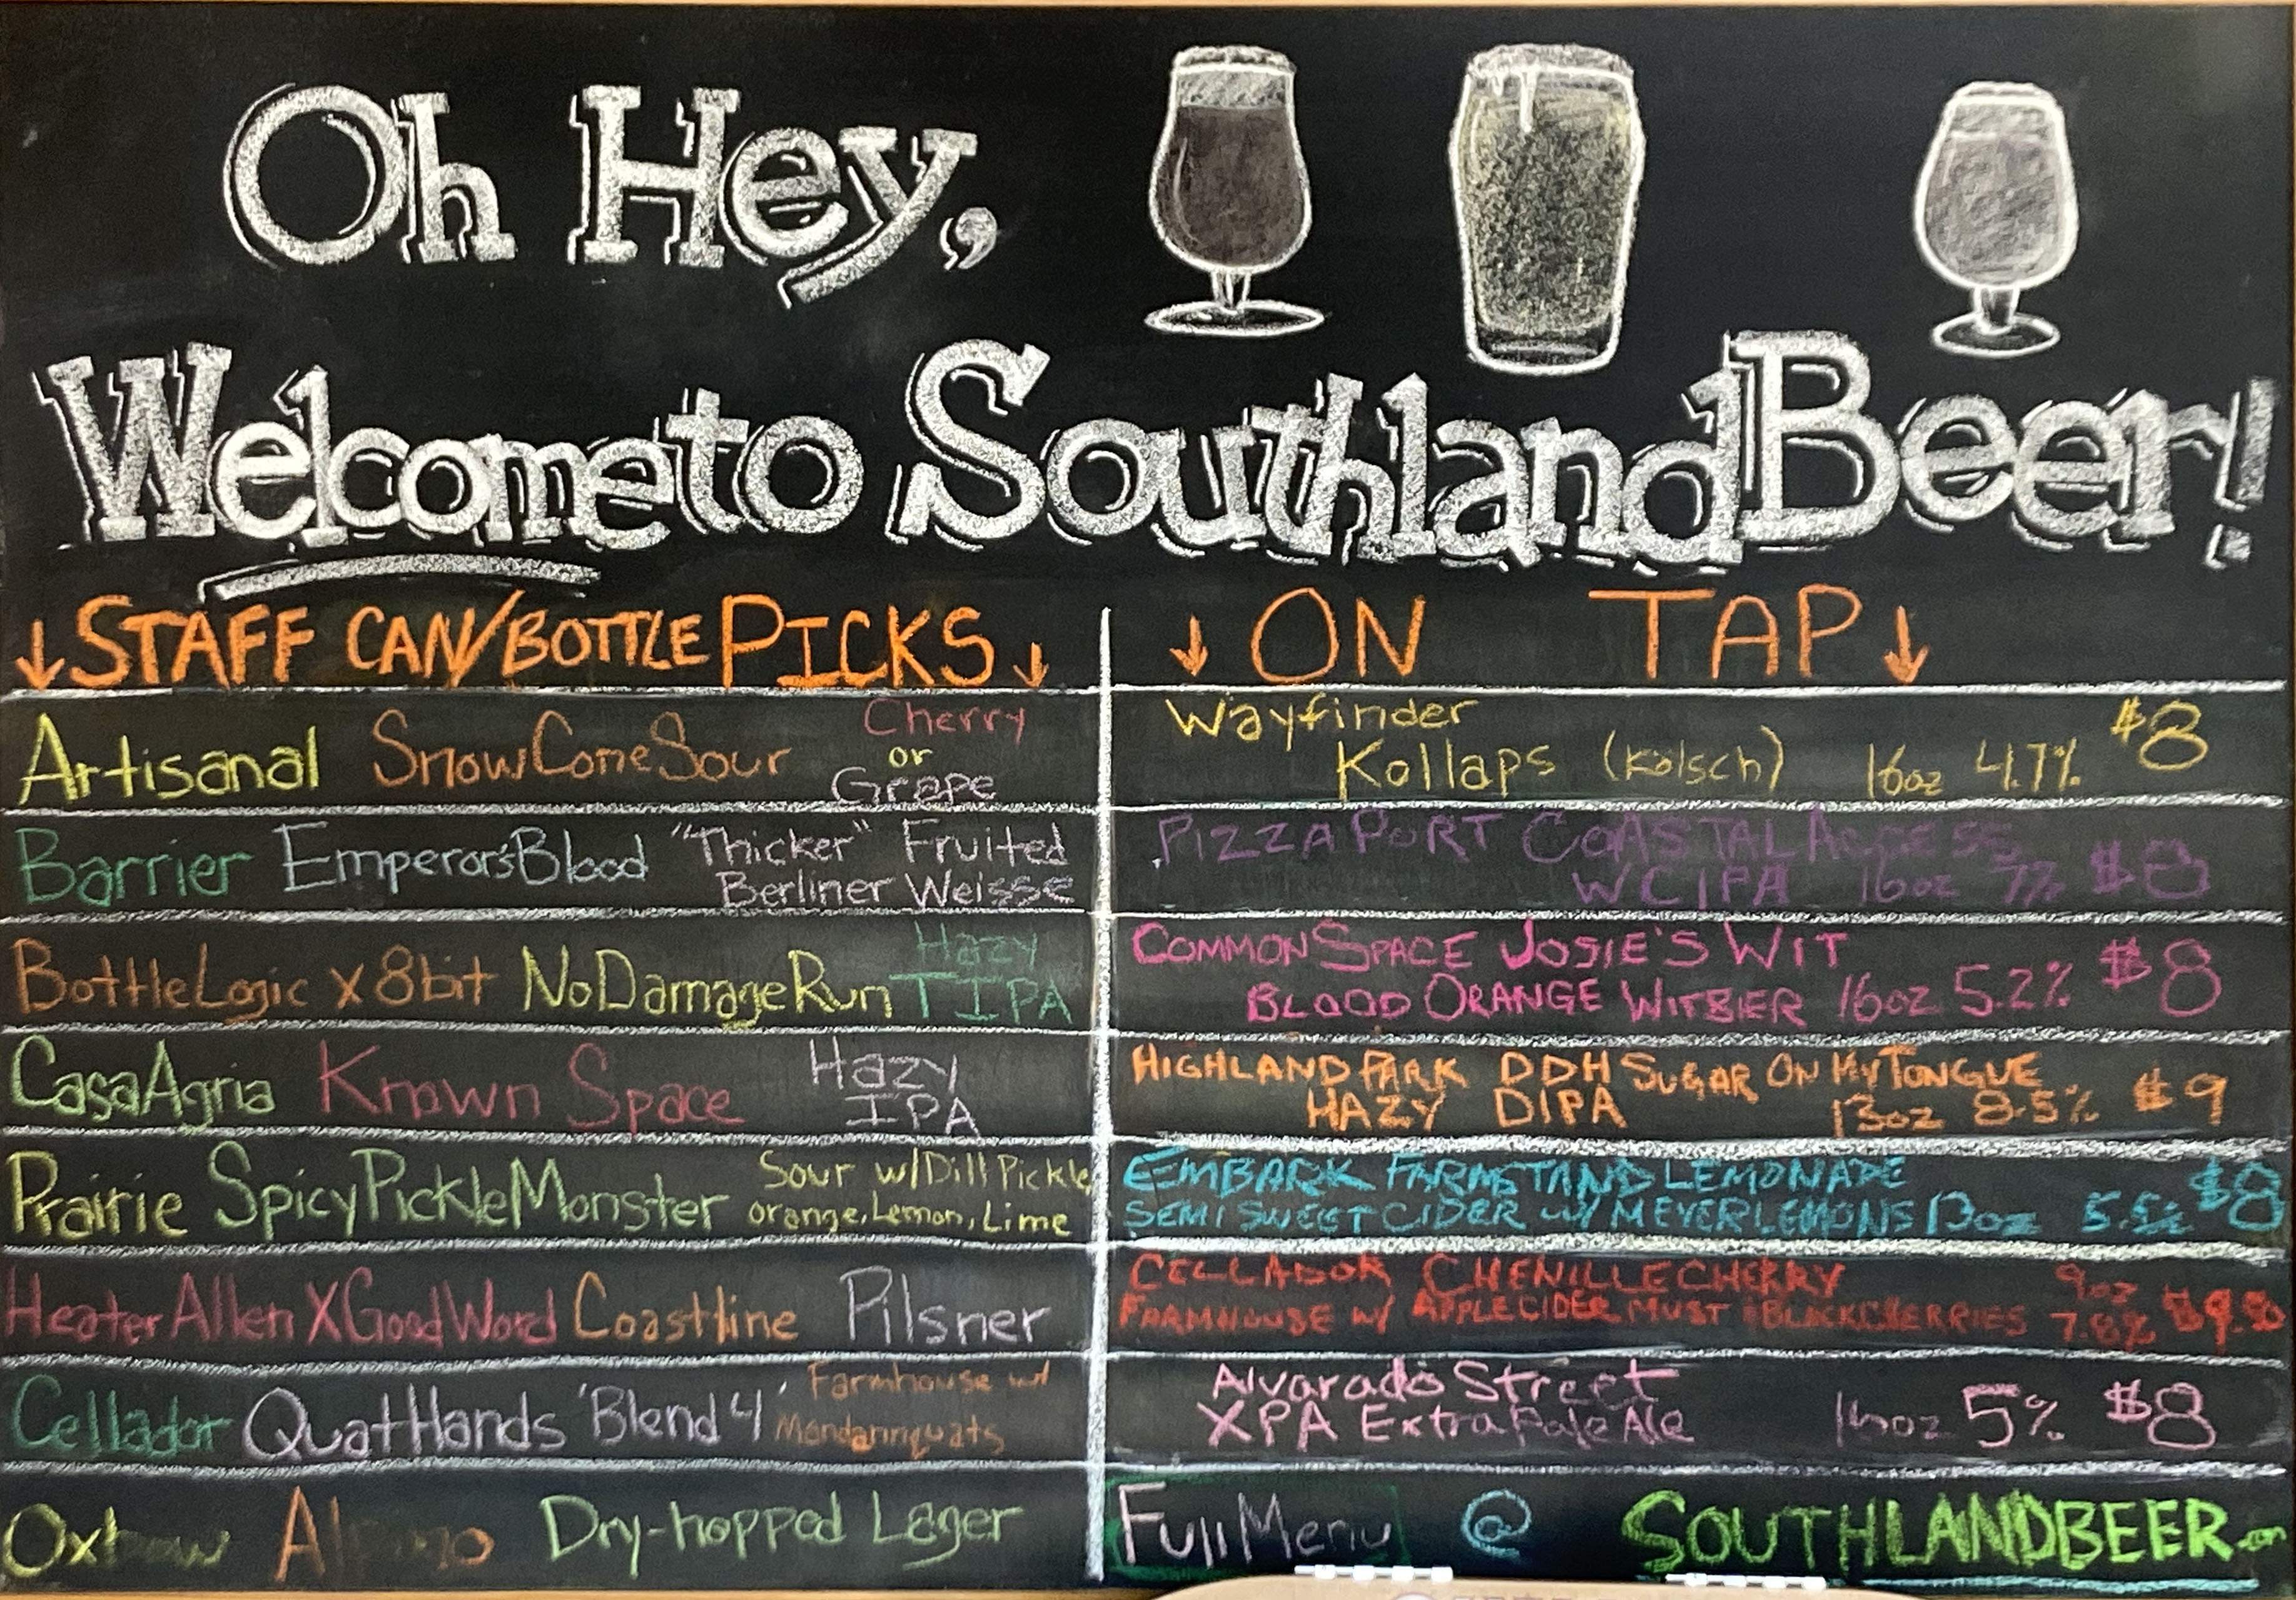 Oh Hey,
Welcome to Southland Beer!
↓ STAFF CAN/BOTTLE PICKS ↓
Artisanal Snow Cone Sour Cherry
or
Grape
Barrier Emperor's Blood "Thicker" Fruited
Berliner Weisse
Bottle Logic x 8bit No Damage Run Hazy
TIPA
Casa Agria Known Space Hazy
IPA
Prairie Spicy Pickle Monster Sour w/ Dill Pickle,
orange, Lemon, Lime
Heater Allen X Good Word Coastline Pilsner
Cellador Quat Hands 'Blend 4' Farmhouse w/
Mandarinquats
Oxbow Dry-hopped Lager
↓ ON TAP ↓
Wayfinder
Kollaps (Kölsch) 16oz 4.7% $8
PIZZA PORT COASTAL ACCESS
WC IPA 16oz 7% $8
COMMON SPACE JOSIE'S WIT
BLOOD ORANGE WITBIER 16oz 5.2% $8
HIGHLAND PARK DDH SUGAR ON MY TONGUE
HAZY DIPA 13oz 8.5% $9
EMBARK FARMSTAND LEMONADE
SEMI SWEET CIDER w/ MEYER LEMONS 13oz 5.5% $8
CELLADOR CHENILLE CHERRY 9oz
FARMHOUSE W/ APPLE CIDER MUST & BLACK CHERRIES 7.8% $9.50
Alvarado Street
XPA Extra Pale Ale 16oz 5% $8
Full Menu @ SOUTHLANDBEER.com